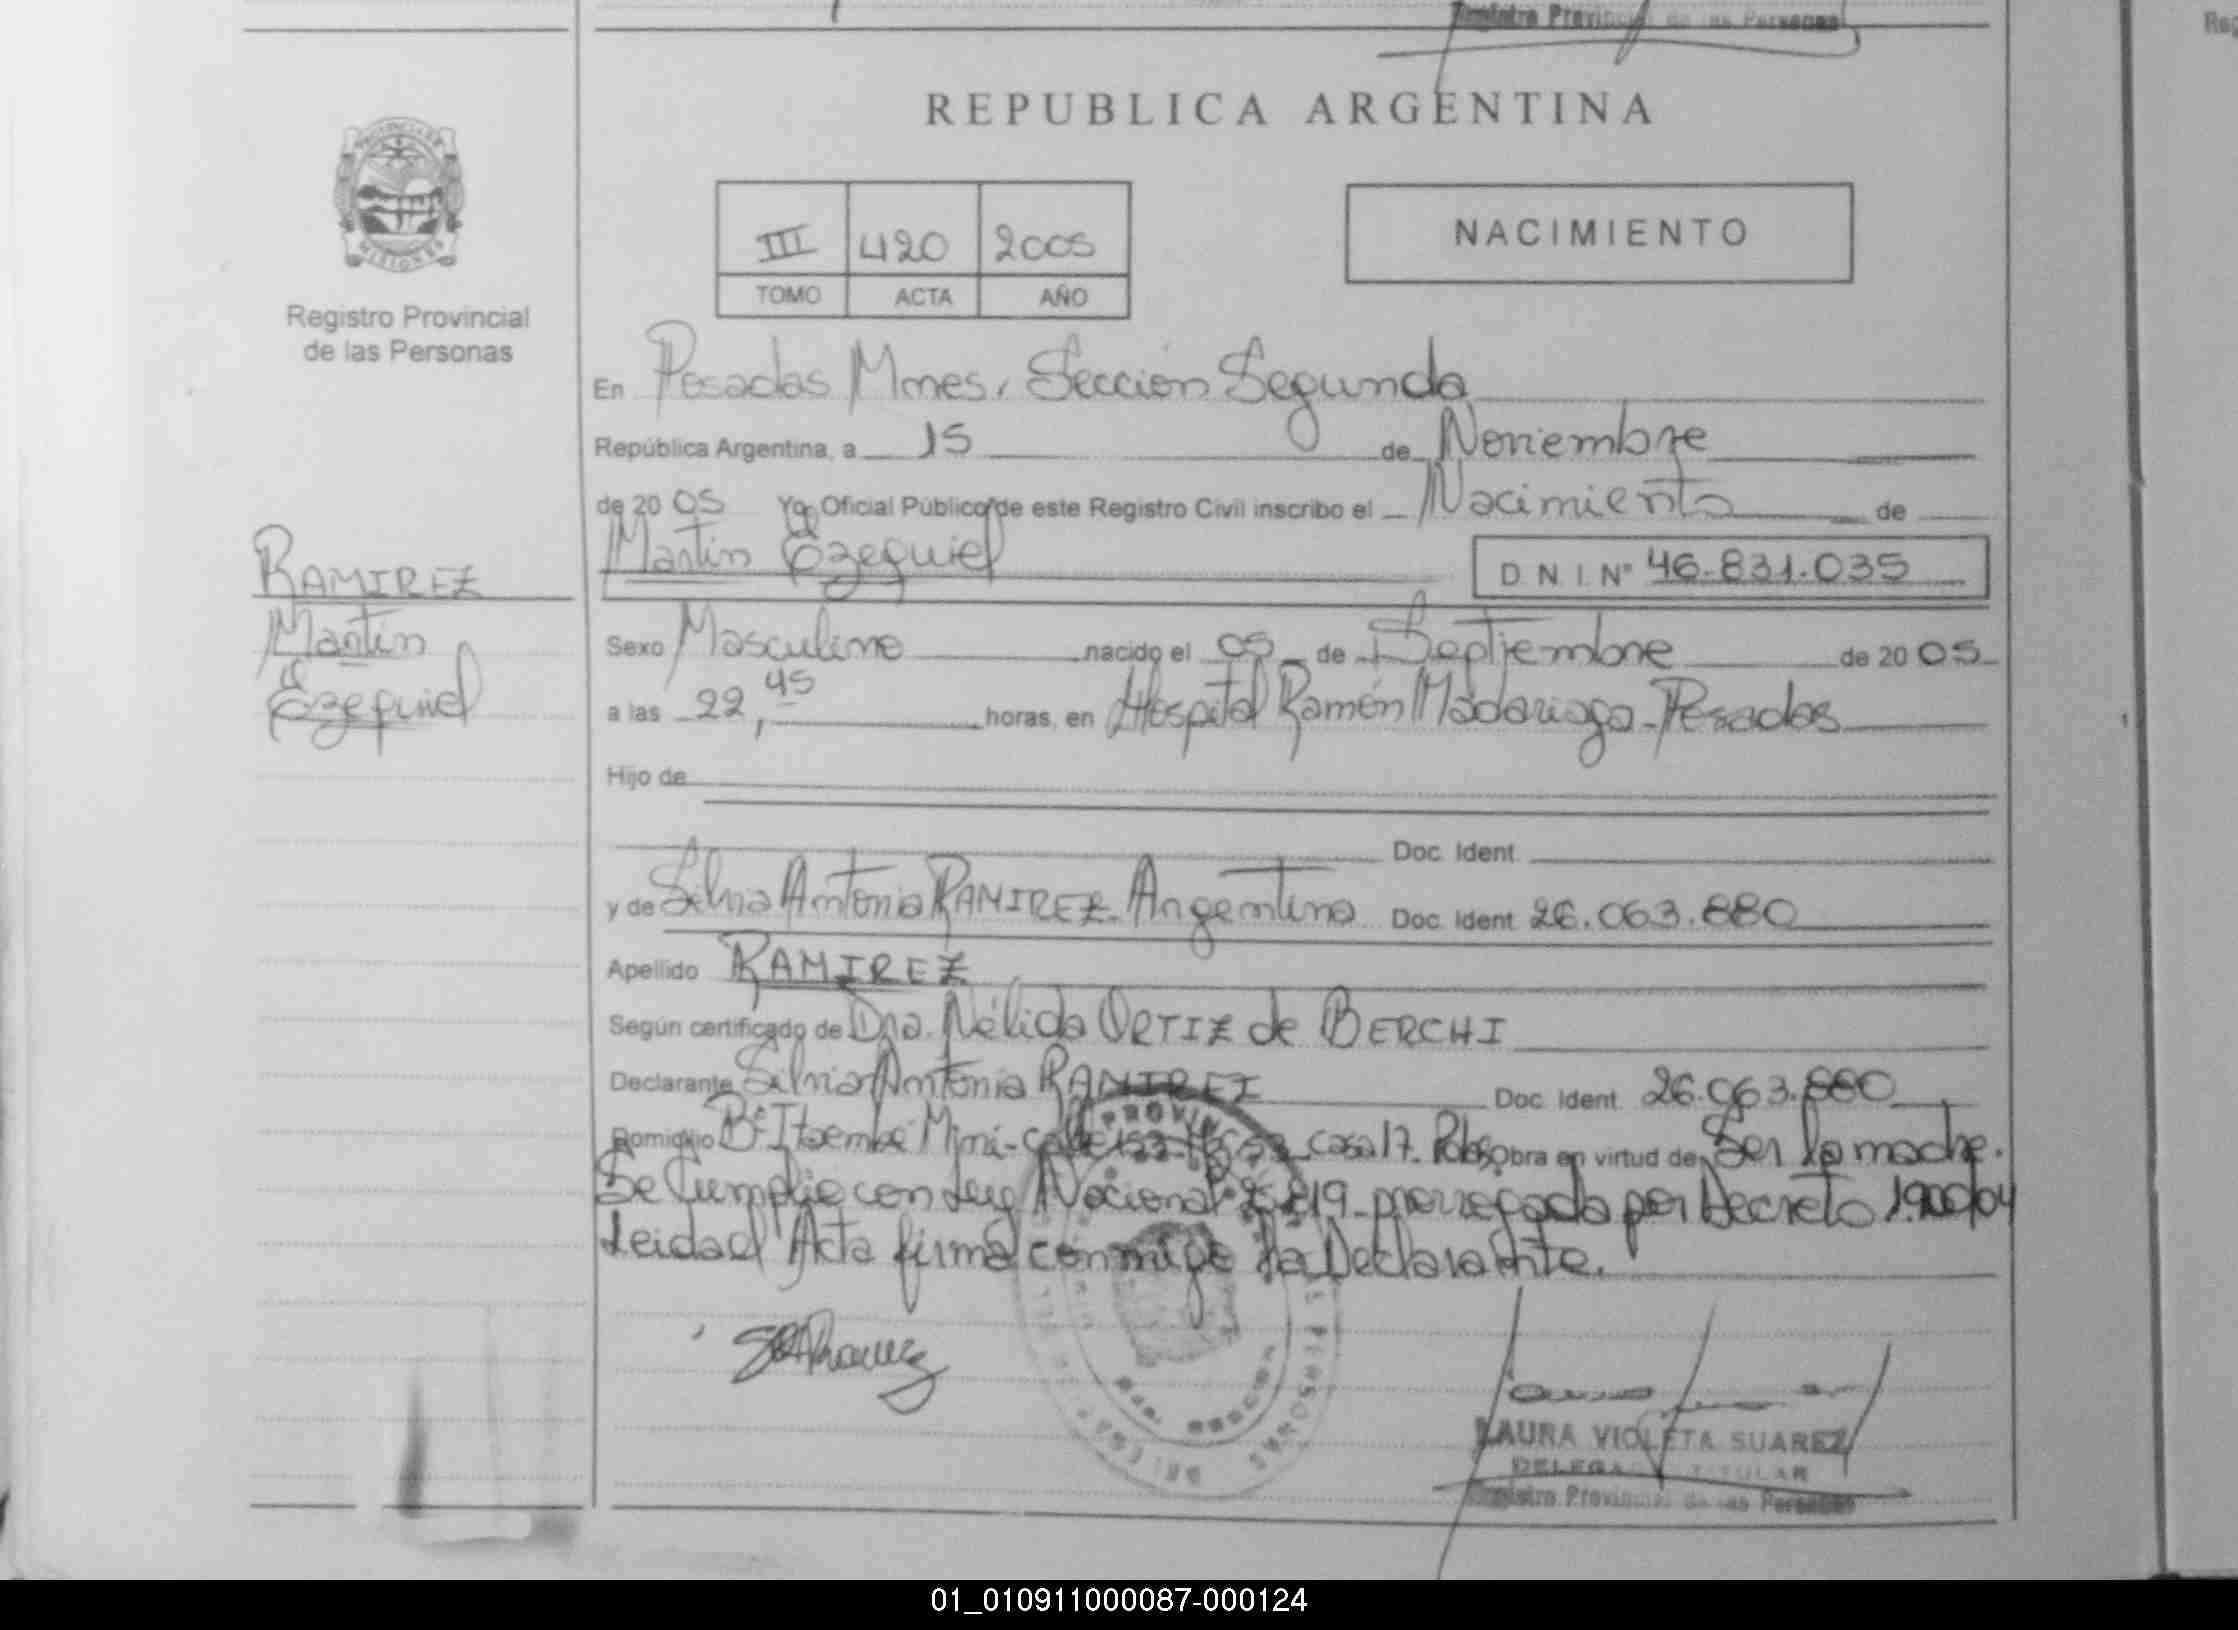 Registro Provincial de las Personas
Reg
REPUBLICA ARGENTINA
PROVINCIA DE
MISIONES
Registro Provincial
de las Personas
III 420 2005
TOMO ACTA AÑO
NACIMIENTO
En Posadas Mnes, Sección Segunda
República Argentina, a 15 de Noviembre
de 20 05 Yo, Oficial Público de este Registro Civil inscribo el Nacimiento de
Martín Ezequiel
D.N.I. N° 46.831.035
RAMIREZ
Martín
Ezequiel
Sexo Masculino nacido el 05 de Septiembre de 20 05
a las 22,45 horas, en Hospital Ramón Madariaga - Posadas
Hijo de
Doc. Ident.
y de Silvia Antonia RAMIREZ. Argentina Doc. Ident. 26.063.880
Apellido RAMIREZ
Según certificado de Dra. Nélida ORTIZ de BERCHI
Declarante Silvia Antonia RAMIREZ Doc. Ident. 26.063.880
Domicilio B° Itaembé Miní - calle casa 17. Pdas obra en virtud de Ser la madre.
Se Cumplio con Ley Nacional prorrogada por Decreto 1.900/04
Leida el Acta firma conmigo la Declarante.
LAURA VIOLETA SUAREZ
DELEGADA TITULAR
Registro Provincial de las Personas
01_010911000087-000124